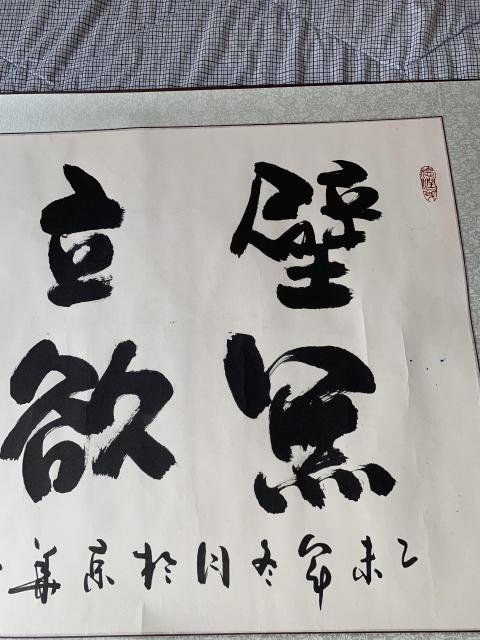 壁立
無欲
乙未年冬月於京華